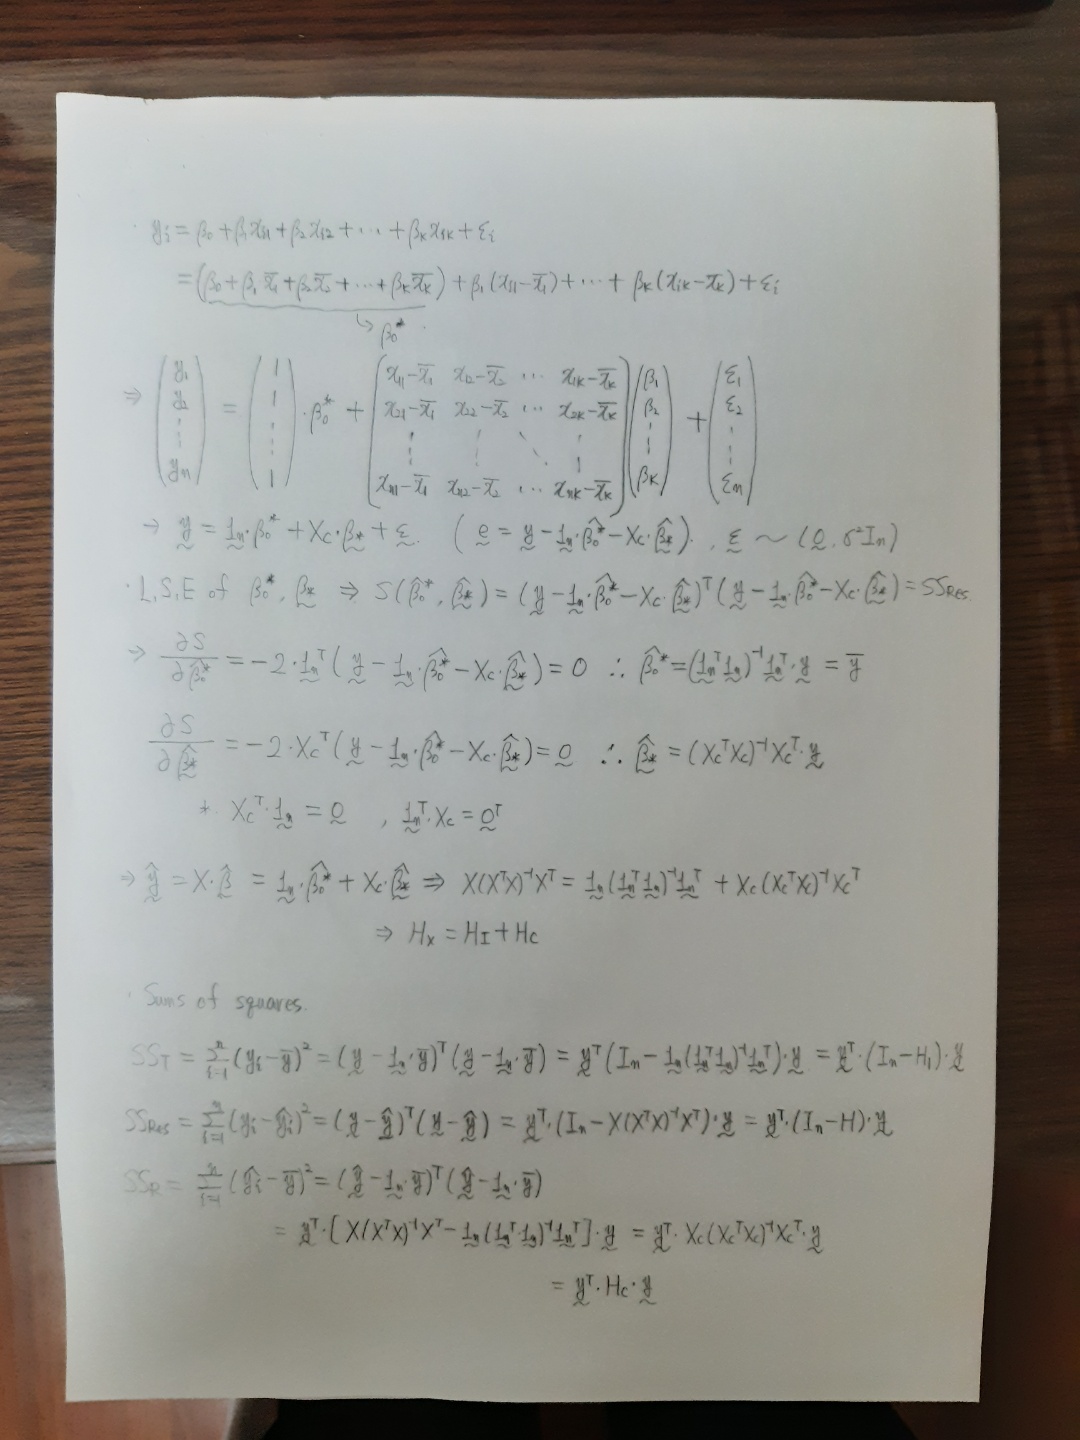 · yᵢ = β₀ + β₁xᵢ₁ + β₂xᵢ₂ + ··· + βₖxᵢₖ + εᵢ
= (β₀ + β₁x̄₁ + β₂x̄₂ + ··· + βₖx̄ₖ) + β₁(xᵢ₁ − x̄₁) + ··· + βₖ(xᵢₖ − x̄ₖ) + εᵢ
↳ β₀*
⇒ (y₁ y₂ ⋮ yₙ) = (1 1 ⋮ 1)·β₀* + (x₁₁−x̄₁ x₁₂−x̄₂ ··· x₁ₖ−x̄ₖ x₂₁−x̄₁ x₂₂−x̄₂ ··· x₂ₖ−x̄ₖ ⋮ ⋮ ⋱ ⋮ xₙ₁−x̄₁ xₙ₂−x̄₂ ··· xₙₖ−x̄ₖ)(β₁ β₂ ⋮ βₖ) + (ε₁ ε₂ ⋮ εₙ)
→ y̰ = 1̰ₙ·β₀* + Xc·β̰* + ε̰. (ḛ = y̰ − 1̰ₙ·β̂₀* − Xc·β̰̂*). , ε̰ ~ (0̰, σ²Iₙ)
· L.S.E of β₀*, β̰* ⇒ S(β̂₀*, β̰̂*) = (y̰ − 1̰ₙ·β̂₀* − Xc·β̰̂*)ᵀ(y̰ − 1̰ₙ·β̂₀* − Xc·β̰̂*) = SSRes.
⇒ ∂S/∂β̂₀* = −2·1̰ₙᵀ(y̰ − 1̰ₙ·β̂₀* − Xc·β̰̂*) = 0 ∴ β̂₀* = (1̰ₙᵀ1̰ₙ)⁻¹1̰ₙᵀ·y̰ = ȳ
∂S/∂β̰̂* = −2·Xcᵀ(y̰ − 1̰ₙ·β̂₀* − Xc·β̰̂*) = 0̰ ∴ β̰̂* = (XcᵀXc)⁻¹Xcᵀ·y̰
* Xcᵀ·1̰ₙ = 0̰ , 1̰ₙᵀ·Xc = 0̰ᵀ
⇒ ŷ̰ = X·β̰̂ = 1̰ₙ·β̂₀* + Xc·β̰̂* ⇒ X(XᵀX)⁻¹Xᵀ = 1̰ₙ(1̰ₙᵀ1̰ₙ)⁻¹1̰ₙᵀ + Xc(XcᵀXc)⁻¹Xcᵀ
⇒ Hx = HI + Hc
· Sums of squares.
SST = Σᵢ₌₁ⁿ(yᵢ − ȳ)² = (y̰ − 1̰ₙ·ȳ)ᵀ(y̰ − 1̰ₙ·ȳ) = y̰ᵀ(Iₙ − 1̰ₙ(1̰ₙᵀ1̰ₙ)⁻¹1̰ₙᵀ)·y̰ = y̰ᵀ·(Iₙ − H₁)·y̰
SSRes = Σᵢ₌₁ⁿ(yᵢ − ŷᵢ)² = (y̰ − ŷ̰)ᵀ(y̰ − ŷ̰) = y̰ᵀ·(Iₙ − X(XᵀX)⁻¹Xᵀ)·y̰ = y̰ᵀ·(Iₙ − H)·y̰
SSR = Σᵢ₌₁ⁿ(ŷᵢ − ȳ)² = (ŷ̰ − 1̰ₙ·ȳ)ᵀ(ŷ̰ − 1̰ₙ·ȳ)
= y̰ᵀ·[X(XᵀX)⁻¹Xᵀ − 1̰ₙ(1̰ₙᵀ·1̰ₙ)⁻¹1̰ₙᵀ]·y̰ = y̰ᵀ·Xc(XcᵀXc)⁻¹Xcᵀ·y̰
= y̰ᵀ·Hc·y̰